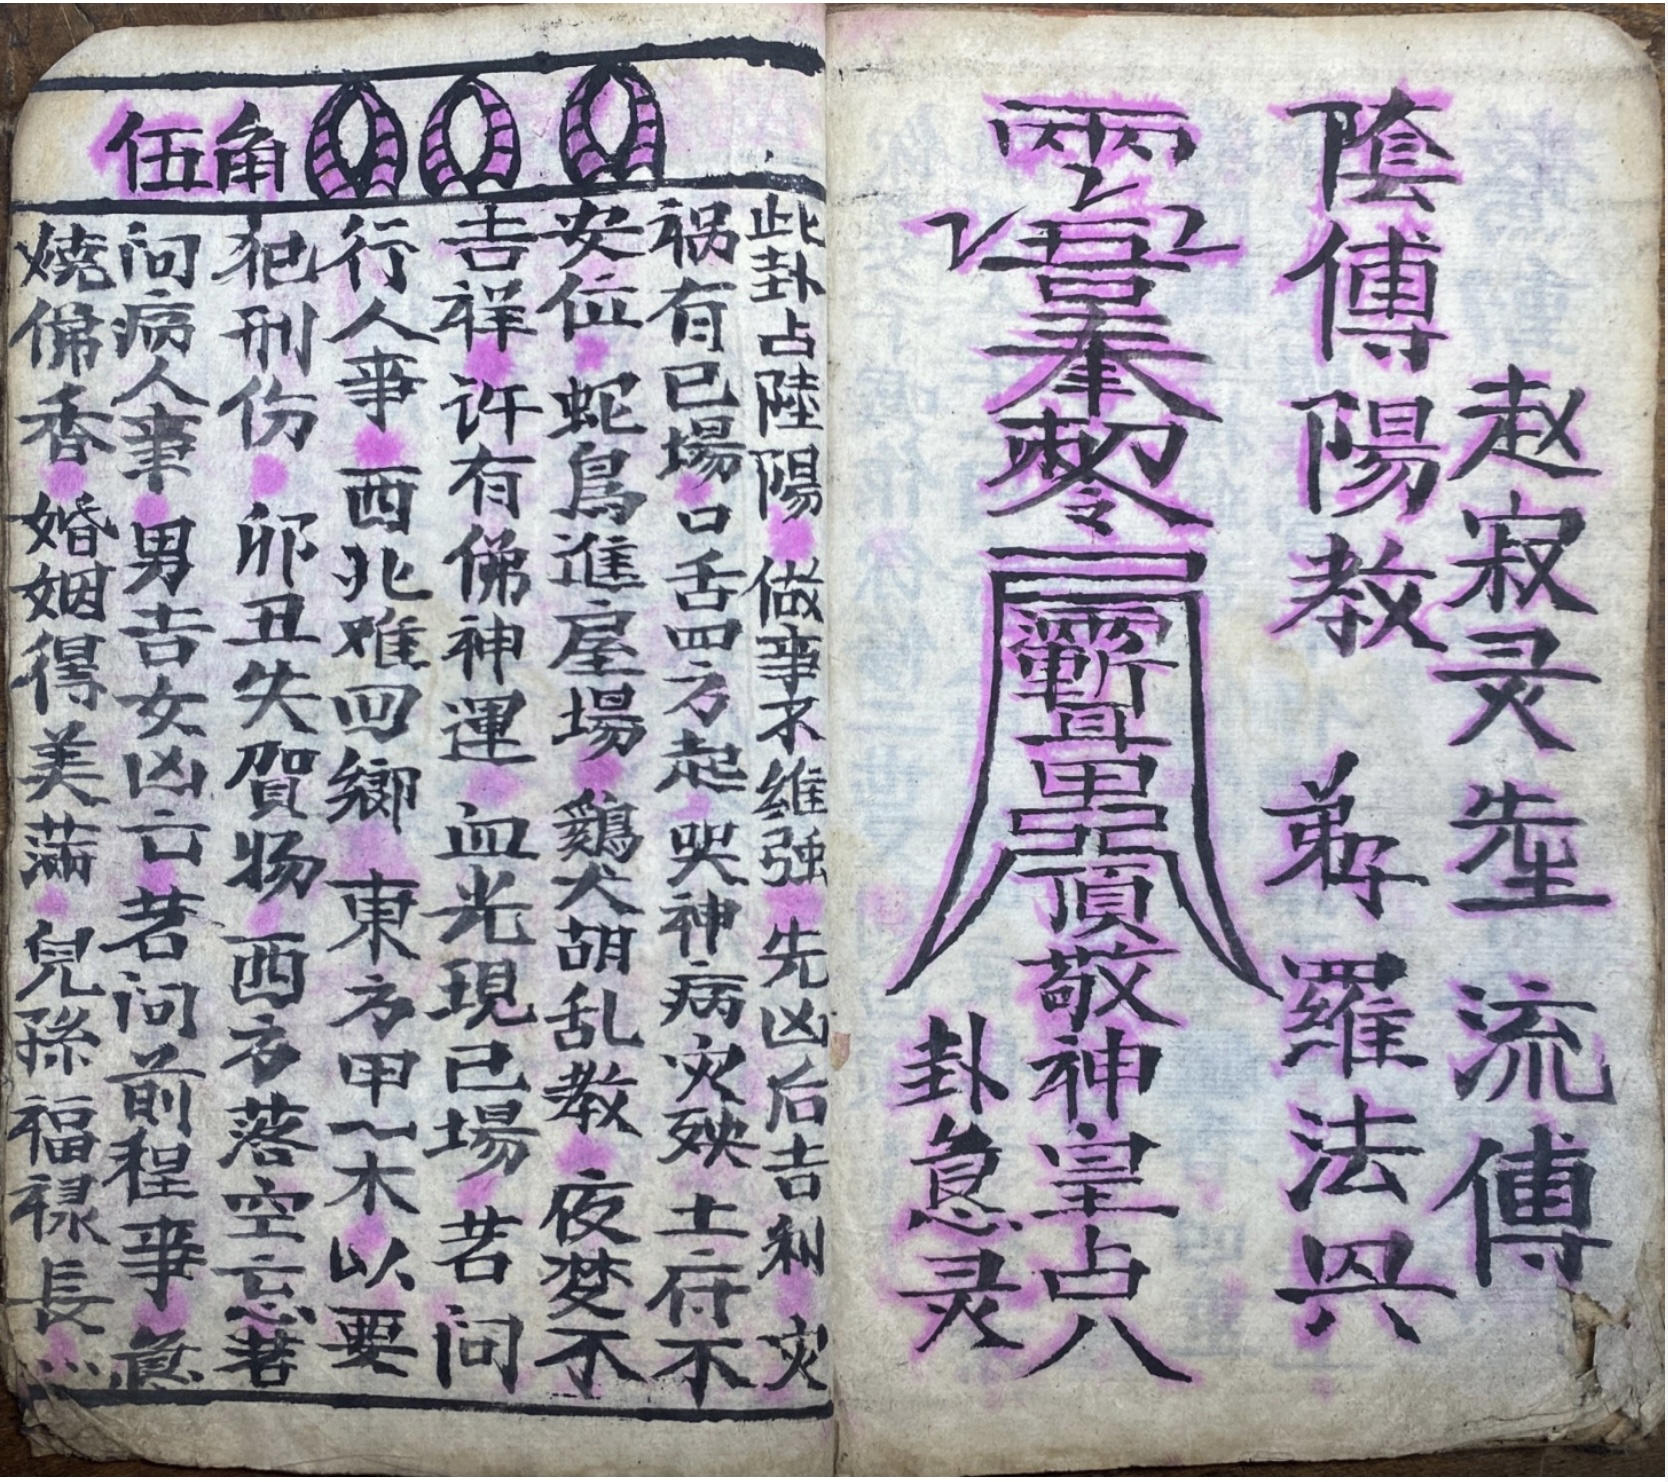 赵寂灵先生 流傳
陰傅陽教 弟子 羅法興
敬神皇占八
卦急灵
伍角
此卦占陸陽 做事不维强 先凶后吉利 灾
祸有已場 口舌四方起 哭神病灾殃 土府不
安位 蛇鳥進屋場 鷄犬胡乱教 夜梦不
吉祥 许有佛神運 血光現己場 若问
行人事 西北难回鄉 東方甲乙木 以要
犯刑伤 卯丑失賀物 西方落空亡 若
问病人事 男吉女凶亡 若问前程事 急
燒佛香 婚姻得美滿 兒孫福禄長